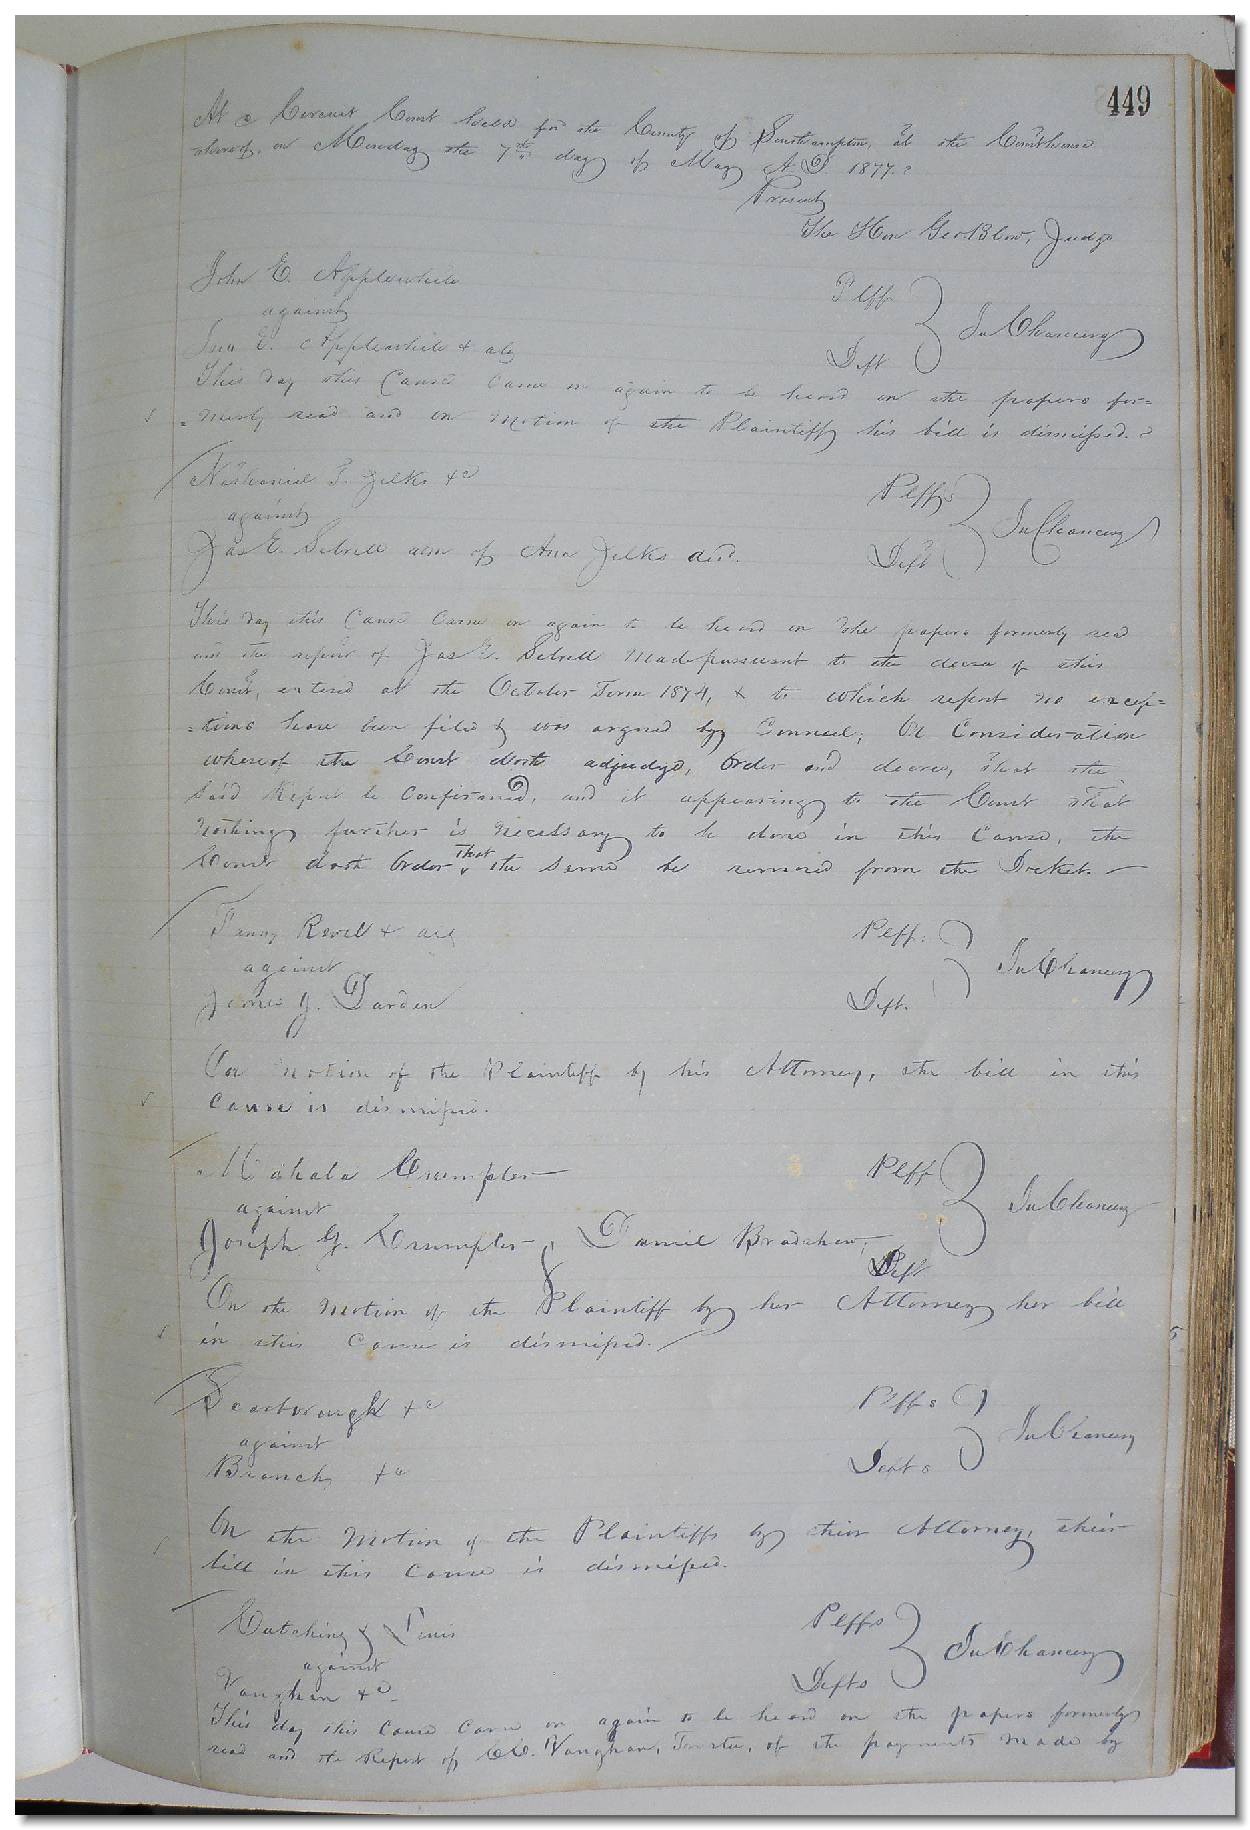 449
At a Circuit Court held for the County of Southampton, at the Courthouse
thereof, on Monday the 7th day of May A.D. 1877.
Present
The Hon Geo Blow, Judge
John E. Applewhite Plff
against In Chancery
Jno E. Applewhite & als Deft
This day this Cause Came on again to be heard on the papers for=
=merly read and on motion of the Plaintiff his bill is dismissed.
Nathaniel T. Jelks &c Plffs
against In Chancery
Jas E. Sebrell adm of Ann Jelks decd. Deft
This day this Cause Came on again to be heard on the papers formerly read
and the report of Jas E. Sebrell made pursuant to the decree of this
Court, entered at the October Term 1874, & to which report no excep=
=tions have been filed & was argued by Counsel; On Consideration
whereof the Court doth adjudge, Order and decree, that the
Said Report be Confirmed, and it appearing to the Court that
Nothing further is necessary to be done in this Cause, the
Court doth Order that the Same be removed from the Docket.
Fanny Revell & als Plff.
against In Chancery
James J. Darden Deft.
On motion of the Plaintiff by his Attorney, the bill in this
Cause is dismissed.
Mahala Crumpler Plff
against In Chancery
Joseph G. Crumpler, & Daniel Bradshaw, Deft
On the motion of the Plaintiff by her Attorney her bill
in this Cause is dismissed.
Scarbrough &c Plffs
against In Chancery
Branch &c Defts
On the motion of the Plaintiffs by their Attorney, their
bill in this Cause is dismissed.
Cutching & Plffs
against In Chancery
Vaughan &c. Defts
This day this Cause Came on again to be heard on the papers formerly
read and the Report of Vaughan, Trustee, of the payments made by